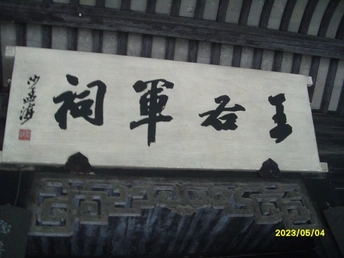 王右軍祠
沙孟海
2023/05/04